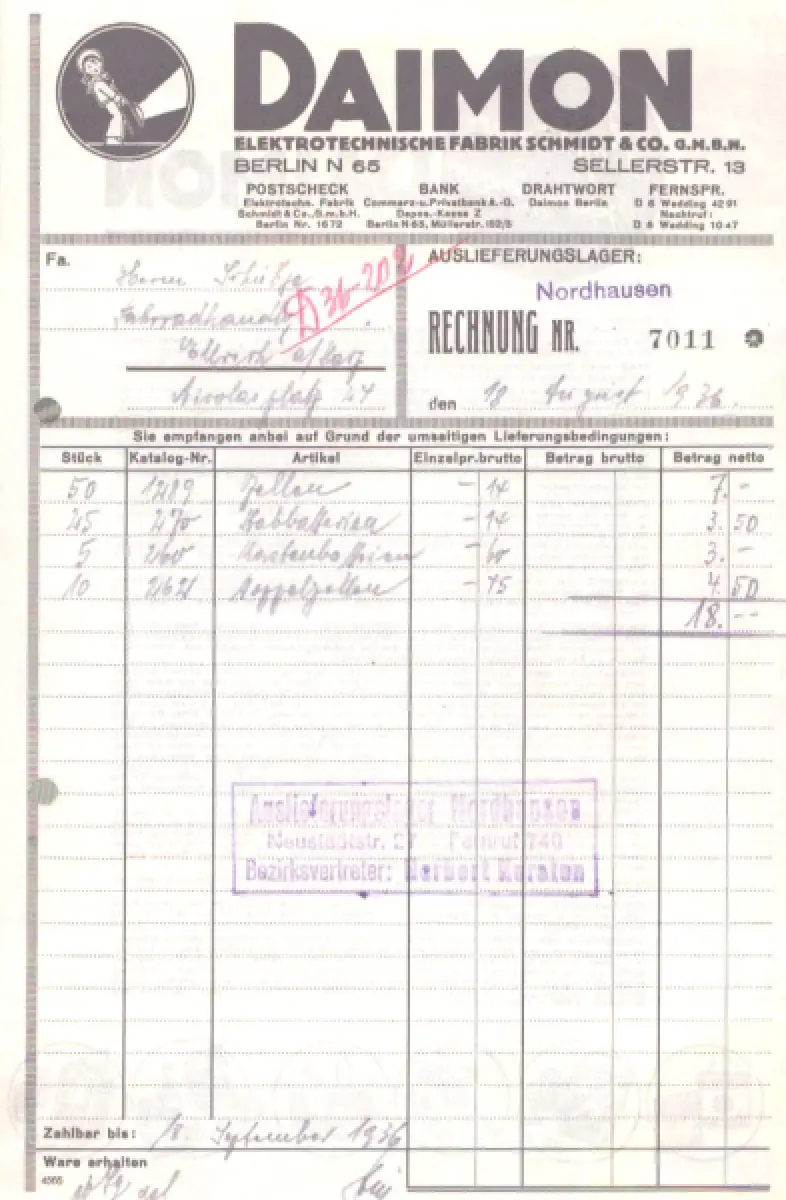 DAIMON
ELEKTROTECHNISCHE FABRIK SCHMIDT & CO. G.M.B.H.
BERLIN N 65 SELLERSTR. 13
POSTSCHECK BANK DRAHTWORT FERNSPR.
Elektrotechn. Fabrik Commerz-u. Privatbank A.-G. Daimon Berlin D 6 Wedding 4291
Schmidt & Co., G.m.b.H. Depos.-Kasse Z Nachtruf:
Berlin Nr. 1672 Berlin N 65, Müllerstr. 152/5 D 6 Wedding 1047
Fa. AUSLIEFERUNGSLAGER:
Herrn Schütze
D 36-20%
Nordhausen
Fahrradhandlg
RECHNUNG NR. 7011
Ellrich a/Harz
Nicolaiplatz 24
den 18 August 1936.
Sie empfangen anbei auf Grund der umseitigen Lieferungsbedingungen:
Stück Katalog-Nr. Artikel Einzelpr. brutto Betrag brutto Betrag netto
50 1289 Zellen - 14 7. -
25 270 Stabbatterien - 14 3. 50
5 260 Kastenbatterien - 60 3. -
10 2621 Doppelzellen - 45 4. 50
18. --
Auslieferungslager Nordhausen
Neustadtstr. 27 Fernruf 740
Bezirksvertreter: Herbert Kersten
Zahlbar bis: 18. September 1936
Ware erhalten
4565